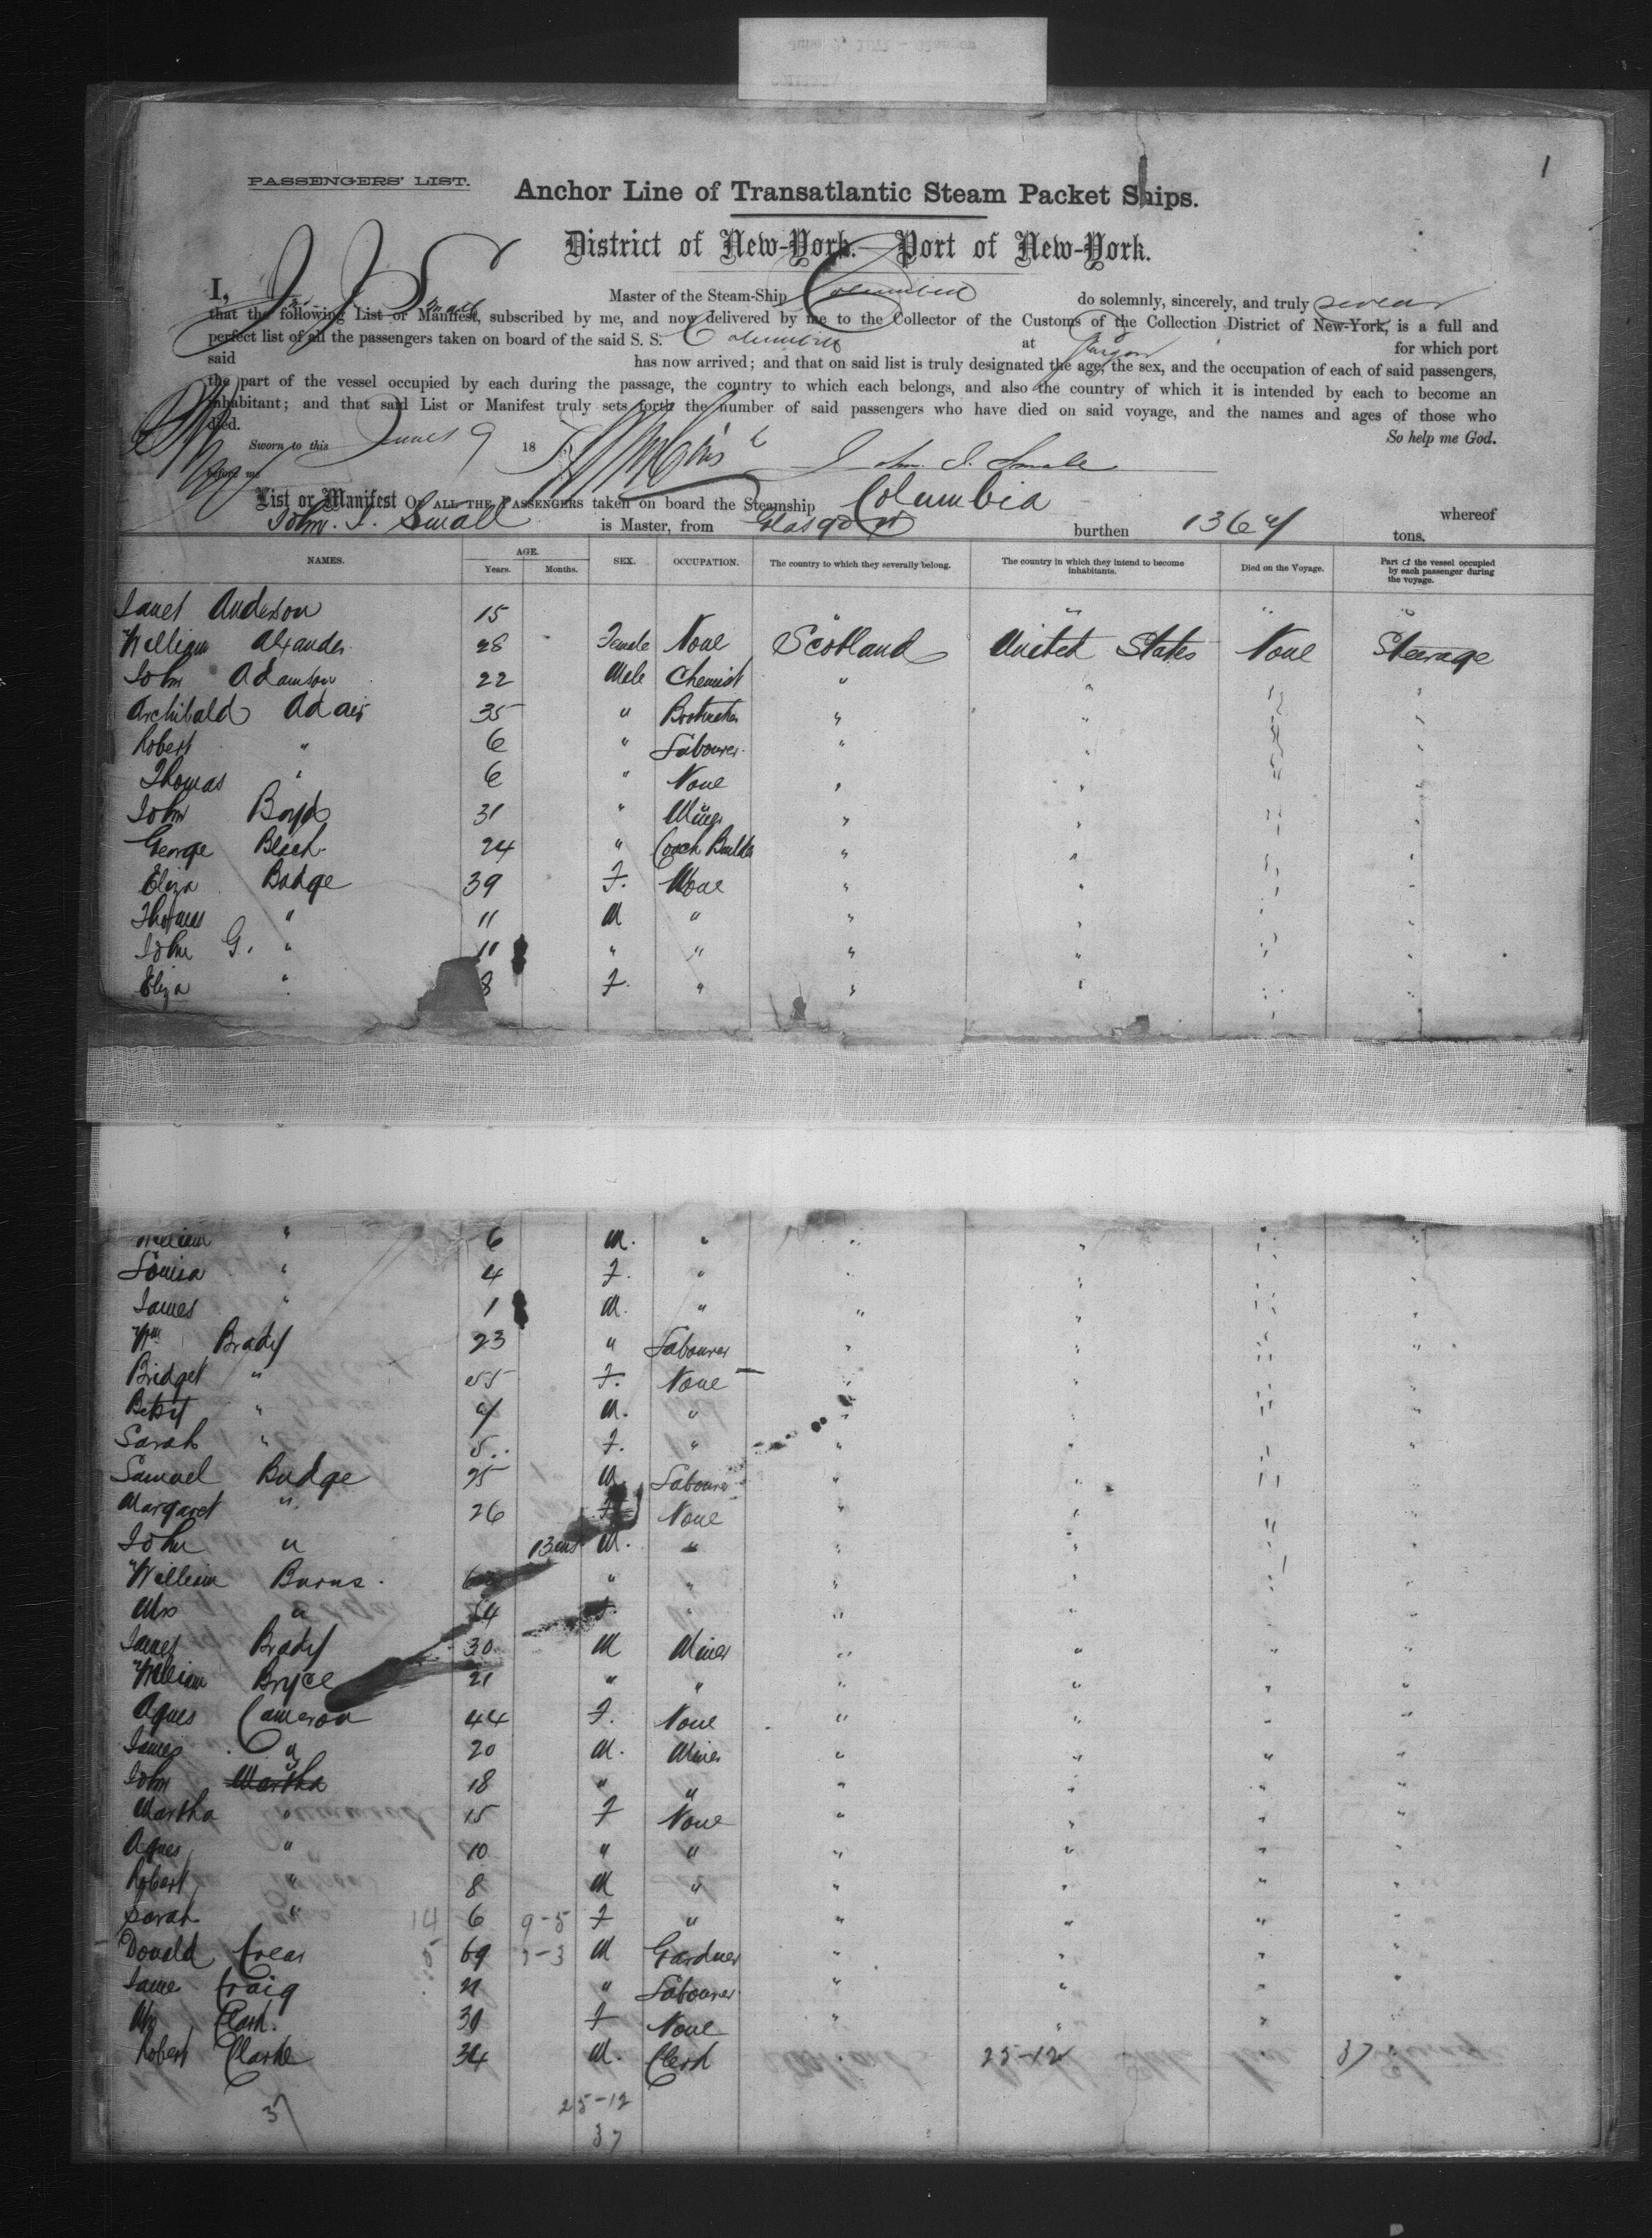 1
PASSENGERS' LIST.
Anchor Line of Transatlantic Steam Packet Ships.
District of New-York. Port of New-York.
I, J. J. Small Master of the Steam-Ship Columbia do solemnly, sincerely, and truly swear
that the following List or Manifest, subscribed by me, and now delivered by me to the Collector of the Customs of the Collection District of New-York, is a full and
perfect list of all the passengers taken on board of the said S. S. Columbia at Glasgow for which port
said has now arrived; and that on said list is truly designated the age, the sex, and the occupation of each of said passengers,
the part of the vessel occupied by each during the passage, the country to which each belongs, and also the country of which it is intended by each to become an
inhabitant; and that said List or Manifest truly sets forth the number of said passengers who have died on said voyage, and the names and ages of those who
died. So help me God.
Sworn to this June 9 18
before me John J. Small
List or Manifest OF ALL THE PASSENGERS taken on board the Steamship Columbia whereof
John. J. Small is Master, from Glasgow burthen tons.
NAMES. AGE. SEX. OCCUPATION. The country to which they severally belong. The country in which they intend to become inhabitants. Died on the Voyage. Part of the vessel occupied by each passenger during the voyage.
Years. Months.
Janet Anderson 15 " " "
William Alxander 28 Female None Scotland United States None Steerage
John Adamson 22 Male Chemist " " " "
Archibald Adair 35 " " " " "
Robert " 6 " Labourer " " " "
Thomas " 6 " None " " " "
John Boyd 31 " Miner " " " "
George Black 24 " Coach Builder " " " "
Eliza Badge 39 F. None " " " "
Thomas " 11 M " " " " "
John G. " 11 " " " " " "
Eliza " 8 F. " " " " "
William " 6 M. " " " " "
Louisa " 4 F. " " " " "
James " 1 M. " " " " "
Wm Brady 23 " Labourer " " " "
Bridget " F. None " " " "
Betsy " M. " " " " "
Sarah " 5 F. " " " " "
Samuel Budge 25 M. Labourer " " " "
Margaret " 26 F. None " " " "
John " 13 ms M. " " " " "
William Burns. " " " " " "
Mrs " F. " " " " "
James Brady 30 M Miner " " " "
William Bryce 21 " " " " " "
Agnes Cameron 44 F. None " " " "
James " 20 M. Miner " " " "
John Martha " 18 " " " " " "
Martha " 15 F None " " " "
Agnes " 10 " " " " " "
Robert " 8 M " " " " "
Sarah " 14 6 9-5 F " " " " "
Donald Crear 5 69 7-3 M Gardner " " " "
James Craig 21 " Labourer " " " "
Mrs Clark. 30 F None " " " "
Robert Clarke 34 M. Clerk 25-12 37
37 25-12
37